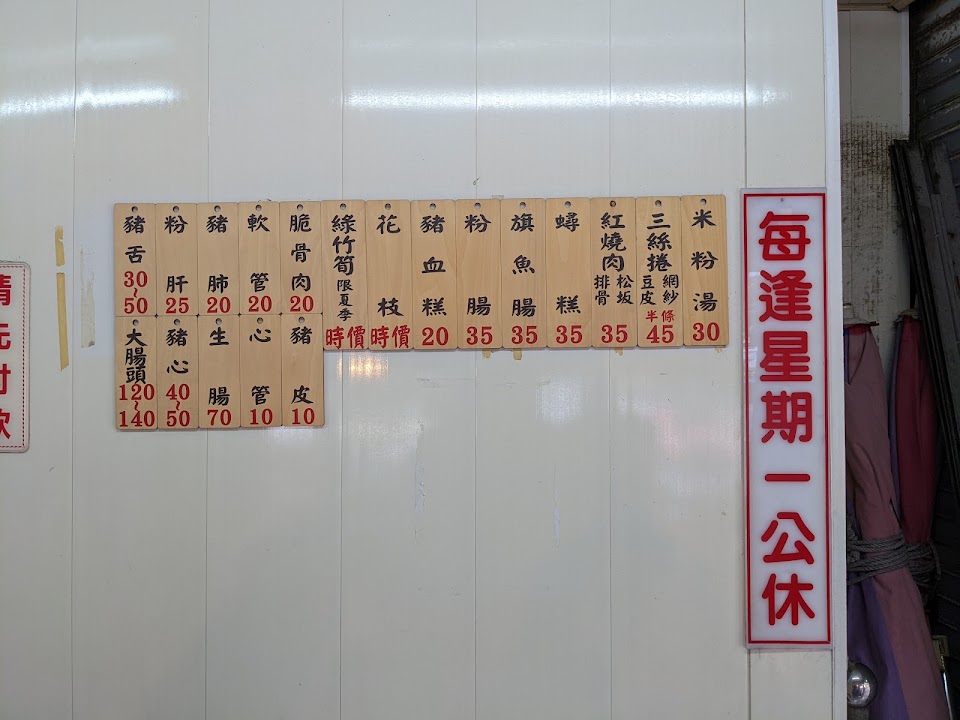 每逢星期一公休
米粉湯 30
三絲捲 網紗 豆皮 半條 45
紅燒肉 松坂 排骨 35
蟳糕 35
旗魚腸 35
粉腸 35
豬血糕 20
花枝 時價
綠竹筍 限夏季 時價
脆骨肉 20
軟管 20
豬肺 20
粉肝 25
豬舌 30~50
豬皮 10
心管 10
生腸 70
豬心 40~50
大腸頭 120~140
請先付款